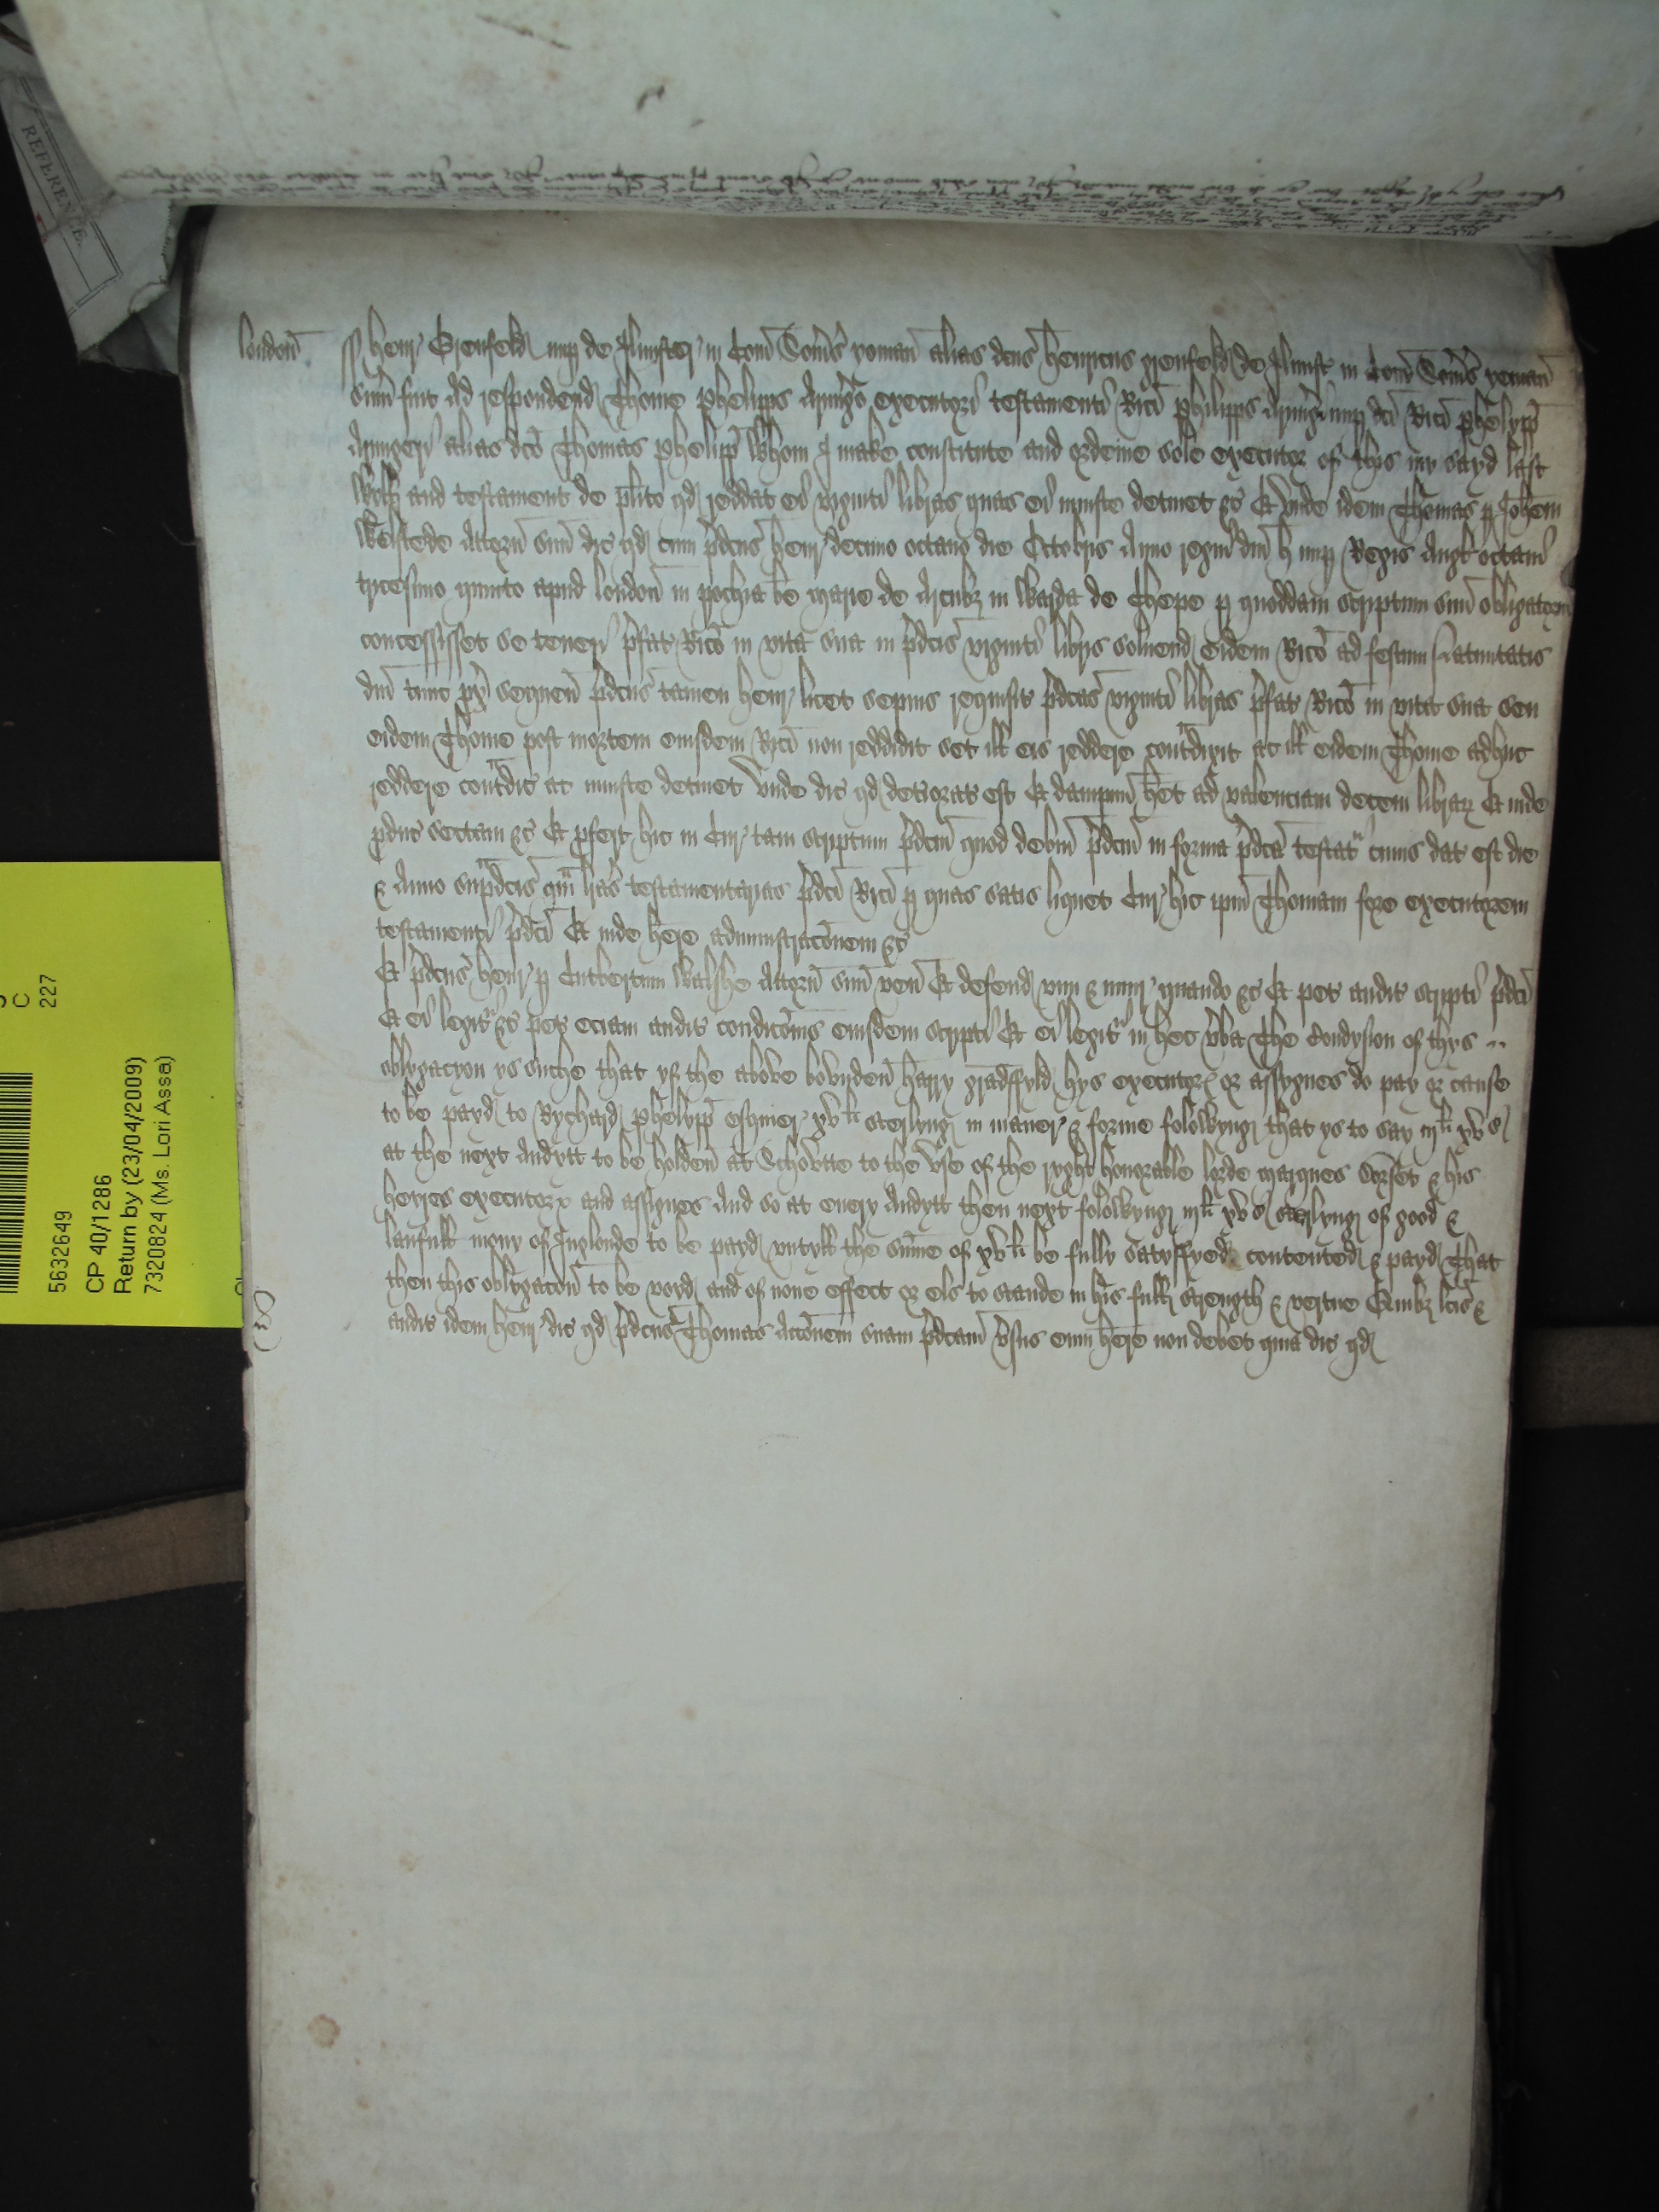 London̄ ss Henr̛ Grenfeld nup de Ilmyster in Com̄ Som̄s yoman alias dcūs Henricus Grenfeld de Ilmyst in Com̄ Som̄s yeman
sum̄ fuit ad respondend Thome Phelipps Armig̛o executori testamenti Rici Philipps Armig̛i nup dci Rici Phelypp
Armigeri alias dc̄o Thomas Phelipp Whom I make constitute and ordeine sole executor of thys my sayd last
Wyll and testament de plito qd reddat ei viginti libras quas ei iniuste detinet &c Et unde idem Thomas p Johem
Welstede Attorn̄ suu dic qd cum p̄dcus Henr̛ decimo octavo die Octobris Anno regni dn̄i H nup Regis Angl octavi
tricesimo quinto apud London̄ in pochia be Marie de Arcubz in Warda de Chepe p quoddam scriptum suu obligatorm
concessisset se teneri p̄fat Rico in vita sua in p̄dcis viginti libris solvend eidem Rico ad festum Nativitatis
dn̄i tunc px̄ sequen̄ p̄dcus tamen Henr̛ licet sepius requisit p̄dcas viginti libras p̄fat Rico in vita sua seu
eidem Thome post mortem eiusdem Rici non reddidit set ill eis reddere cont̛dixit ac ill eidem Thome adhuc
reddere cont̛dic ac iniuste detinet Unde dic qd deteriorat est Et dampnu h̄et ad valenciam decem librar̛ Et inde
p̄duc sectam &c Et p̄fert hic in Cur̛ tam scriptum p̄dcm̄ quod debitu p̄dcm̄ in forma p̄dca testat̛ cuius dat est die
& Anno sup̛dcis qm̄ lras testamentarias p̄dci Rici p quas satis liquet Cur̛ hic ip̄m Thomam fore executorem
testamenti p̄dci Et inde h̄ere administracōnem &c
Et p̄dcus Henr̛ p Cutbertum Walshe Attorn̄ suu ven̄ Et defend vim & iniur̛ quando &c Et pet audit scripti p̄dci
Et ei legit̛ &c pet eciam audit condicōnis eiusdem scripti Et ei legit̛ in hec v̄ba The Condysion of thys
oblygacyon ys suche that yf the above bovnden̄ Harry Gradffyld hys executor or assygnes do pay or cause
to be payd to Rychard Phelypp esquier xv li sterlyng in maner & forme folowyng that ys to say iij li xv s
at the next Audytt to be holden̄ at Schovtte to the Vse of the ryght honorable lorde marques Dorset & his
heyres executor and assignes And so at euery Audytt then next folowyng iij li xv s sterlyng of good &
laufull mony of Inglonde to be payd vntyll the sum̄e of xv li be fully satyffyed contented & payd That
then this obligacōn̄ to be voyd and of none effect or els to stande in his full strength & vertue Quibz lcis &
audit idem Henr̛ dic qd p̄dcus Thomas Accōnem suam p̄dcam v̄sus eum h̄ere non debet quia dic qd
REFERENCE
C
227
5632649
CP 40/1286
Return by (23/04/2009)
7320824 (Ms. Lori Assa)